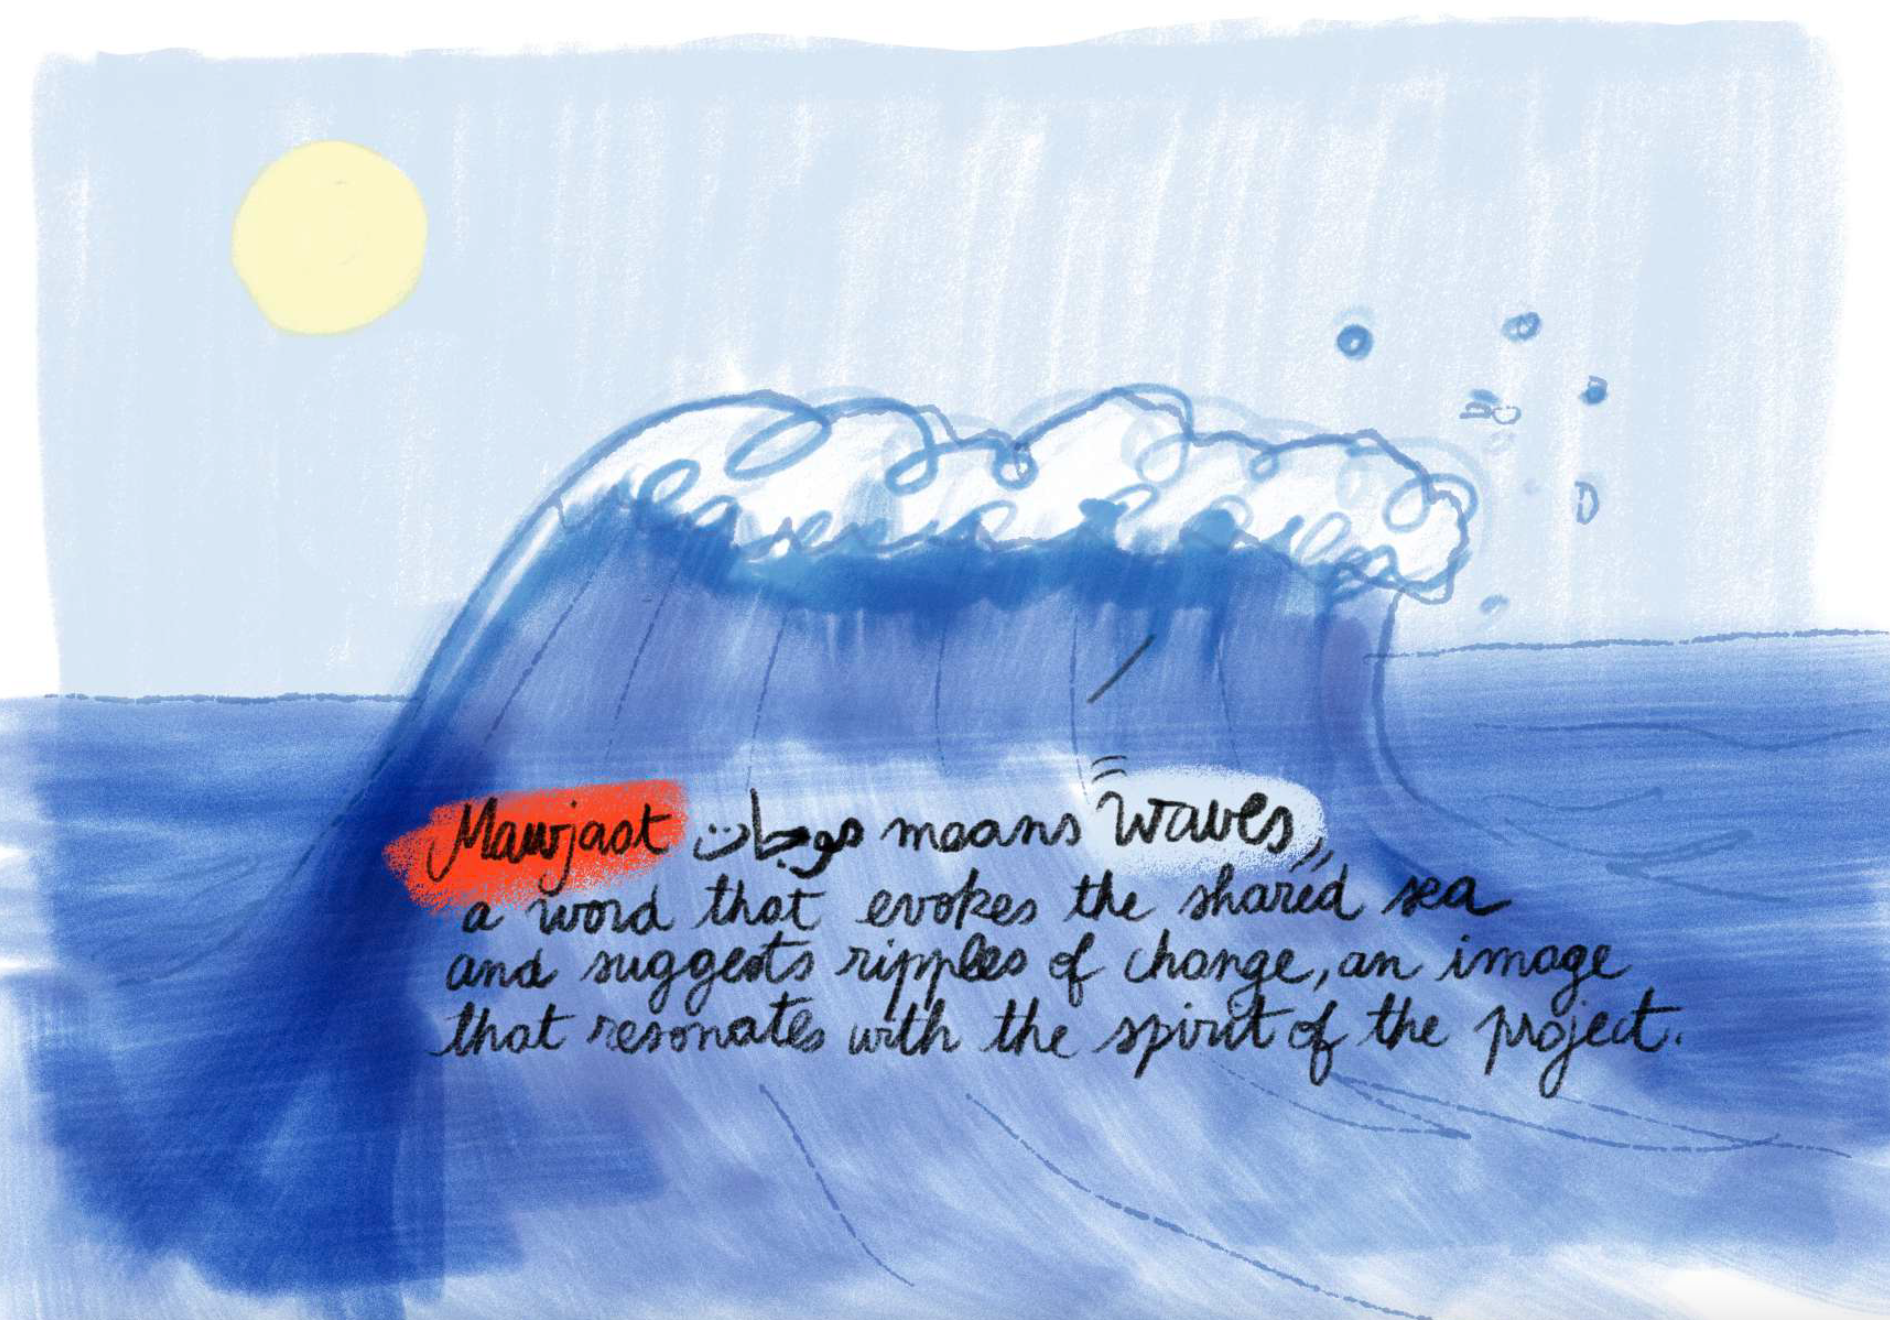 Mawjaat موجات means waves,
a word that evokes the shared sea
and suggests ripples of change, an image
that resonates with the spirit of the project.